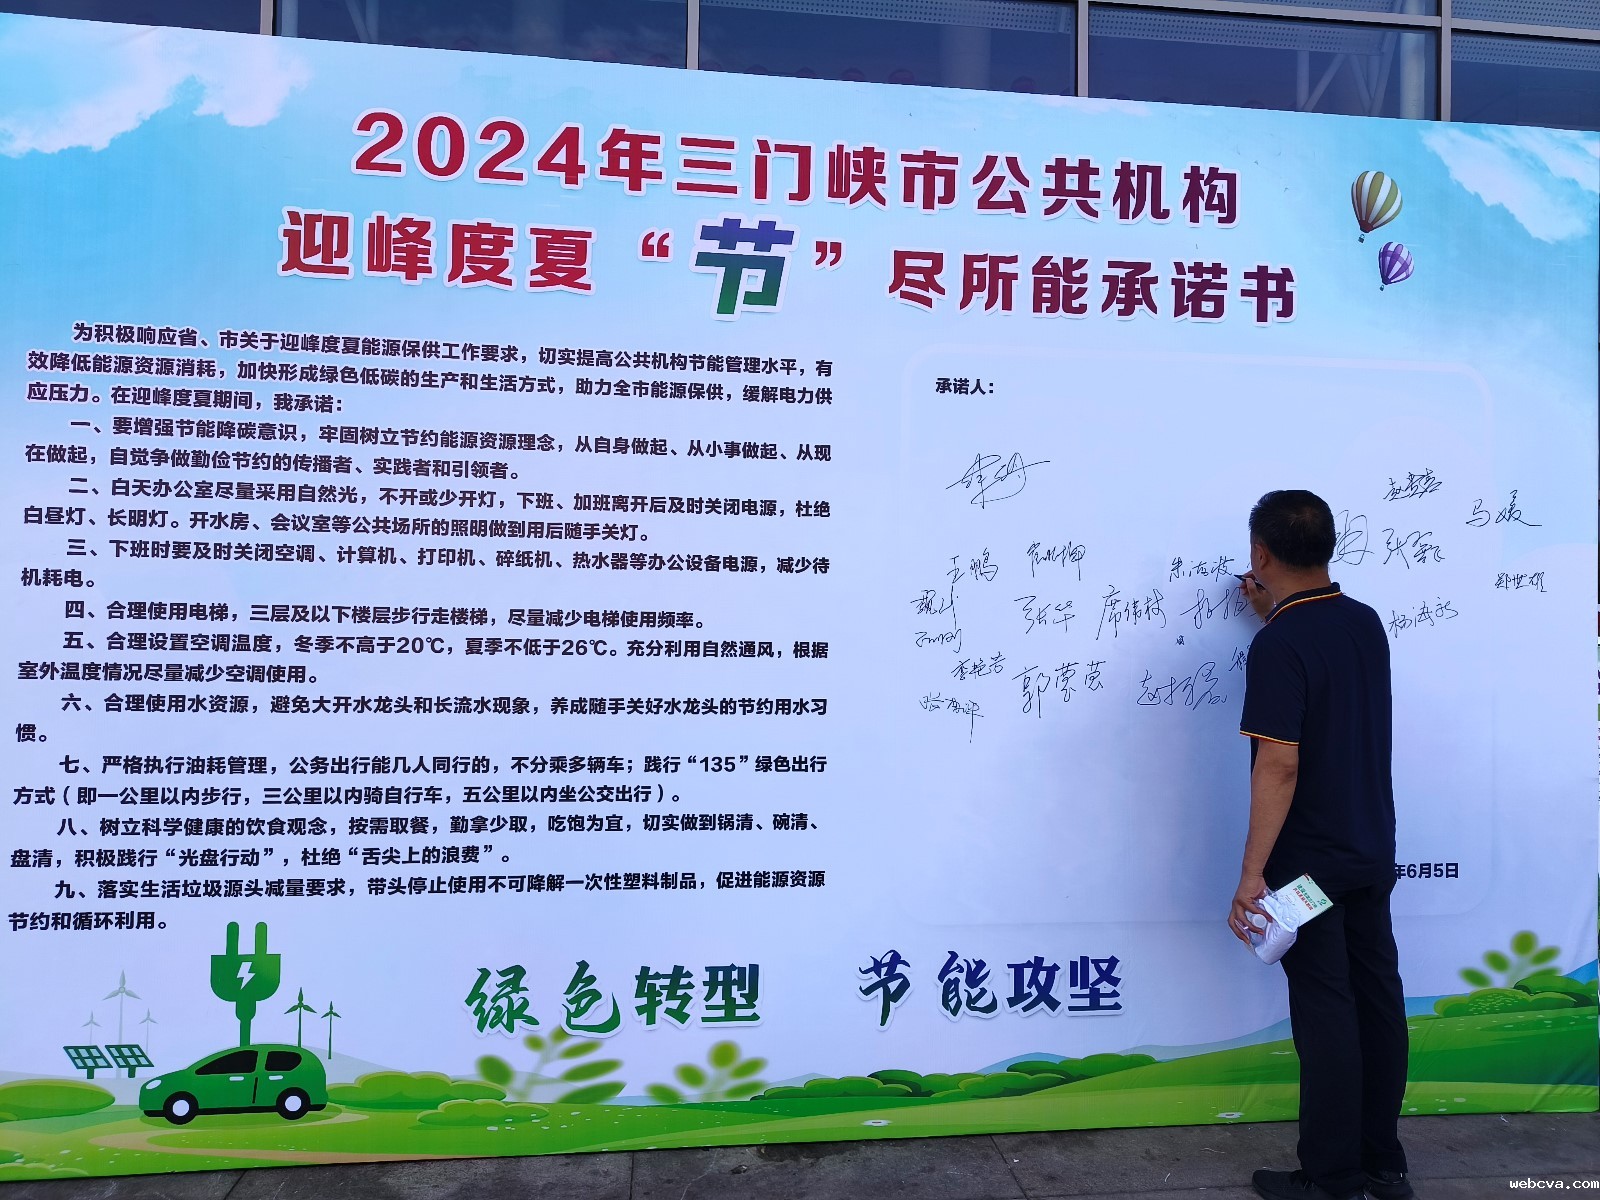 2024年三门峡市公共机构
迎峰度夏“节”尽所能承诺书
为积极响应省、市关于迎峰度夏能源保供工作要求，切实提高公共机构节能管理水平，有
效降低能源资源消耗，加快形成绿色低碳的生产和生活方式，助力全市能源保供，缓解电力供
应压力。在迎峰度夏期间，我承诺：
一、要增强节能降碳意识，牢固树立节约能源资源理念，从自身做起、从小事做起、从现
在做起，自觉争做勤俭节约的传播者、实践者和引领者。
二、白天办公室尽量采用自然光，不开或少开灯，下班、加班离开后及时关闭电源，杜绝
白昼灯、长明灯。开水房、会议室等公共场所的照明做到用后随手关灯。
三、下班时要及时关闭空调、计算机、打印机、碎纸机、热水器等办公设备电源，减少待
机耗电。
四、合理使用电梯，三层及以下楼层步行走楼梯，尽量减少电梯使用频率。
五、合理设置空调温度，冬季不高于20℃，夏季不低于26℃。充分利用自然通风，根据
室外温度情况尽量减少空调使用。
六、合理使用水资源，避免大开水龙头和长流水现象，养成随手关好水龙头的节约用水习
惯。
七、严格执行油耗管理，公务出行能几人同行的，不分乘多辆车；践行“135”绿色出行
方式（即一公里以内步行，三公里以内骑自行车，五公里以内坐公交出行）。
八、树立科学健康的饮食观念，按需取餐，勤拿少取，吃饱为宜，切实做到锅清、碗清、
盘清，积极践行“光盘行动”，杜绝“舌尖上的浪费”。
九、落实生活垃圾源头减量要求，带头停止使用不可降解一次性塑料制品，促进能源资源
节约和循环利用。
承诺人：
马媛
王鹏
张华
席伟村
郑世雄
李艳芳
郭莹莹
年6月5日
绿色转型 节能攻坚
webcva.com